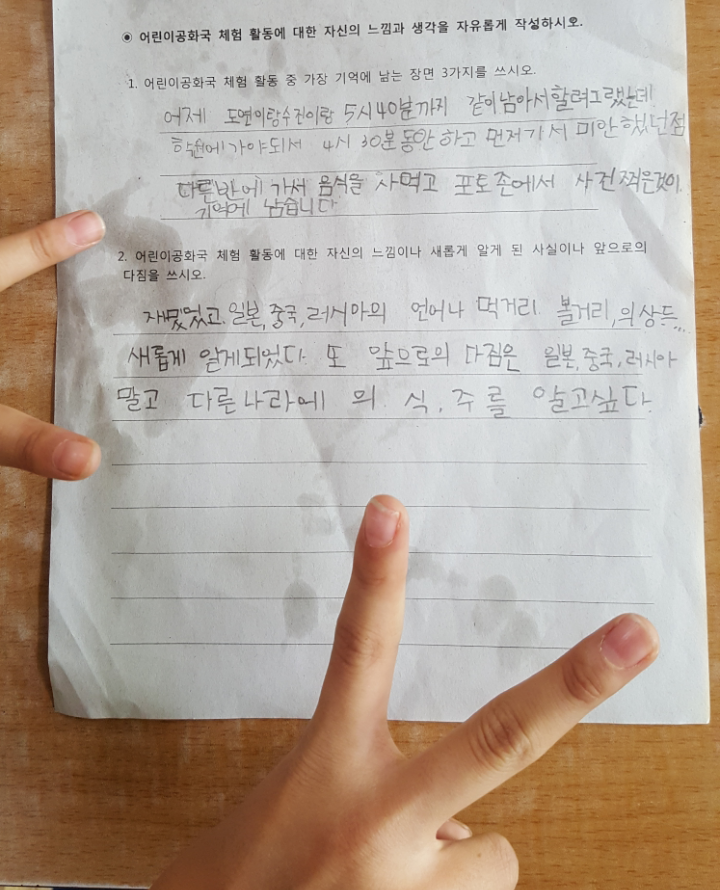 ◉ 어린이공화국 체험 활동에 대한 자신의 느낌과 생각을 자유롭게 작성하시오.
1. 어린이공화국 체험 활동 중 가장 기억에 남는 장면 3가지를 쓰시오.
어제 도연이랑수진이랑 5시40분까지 같이남아서할려그랬는데
학원에가야되서 4시 30분동안하고 먼저가서 미안했던점
다른반에 가서 음식을 사먹고 포토존에서 사진찍은것이
기억에 남습니다
2. 어린이공화국 체험 활동에 대한 자신의 느낌이나 새롭게 알게 된 사실이나 앞으로의
다짐을 쓰시오.
재밌었고, 일본, 중국, 러시아의 언어나 먹거리. 볼거리, 의상등...
새롭게 알게되었다. 또 앞으로의 다짐은 일본, 중국, 러시아
말고 다른나라에 의. 식, 주를 알고싶다.